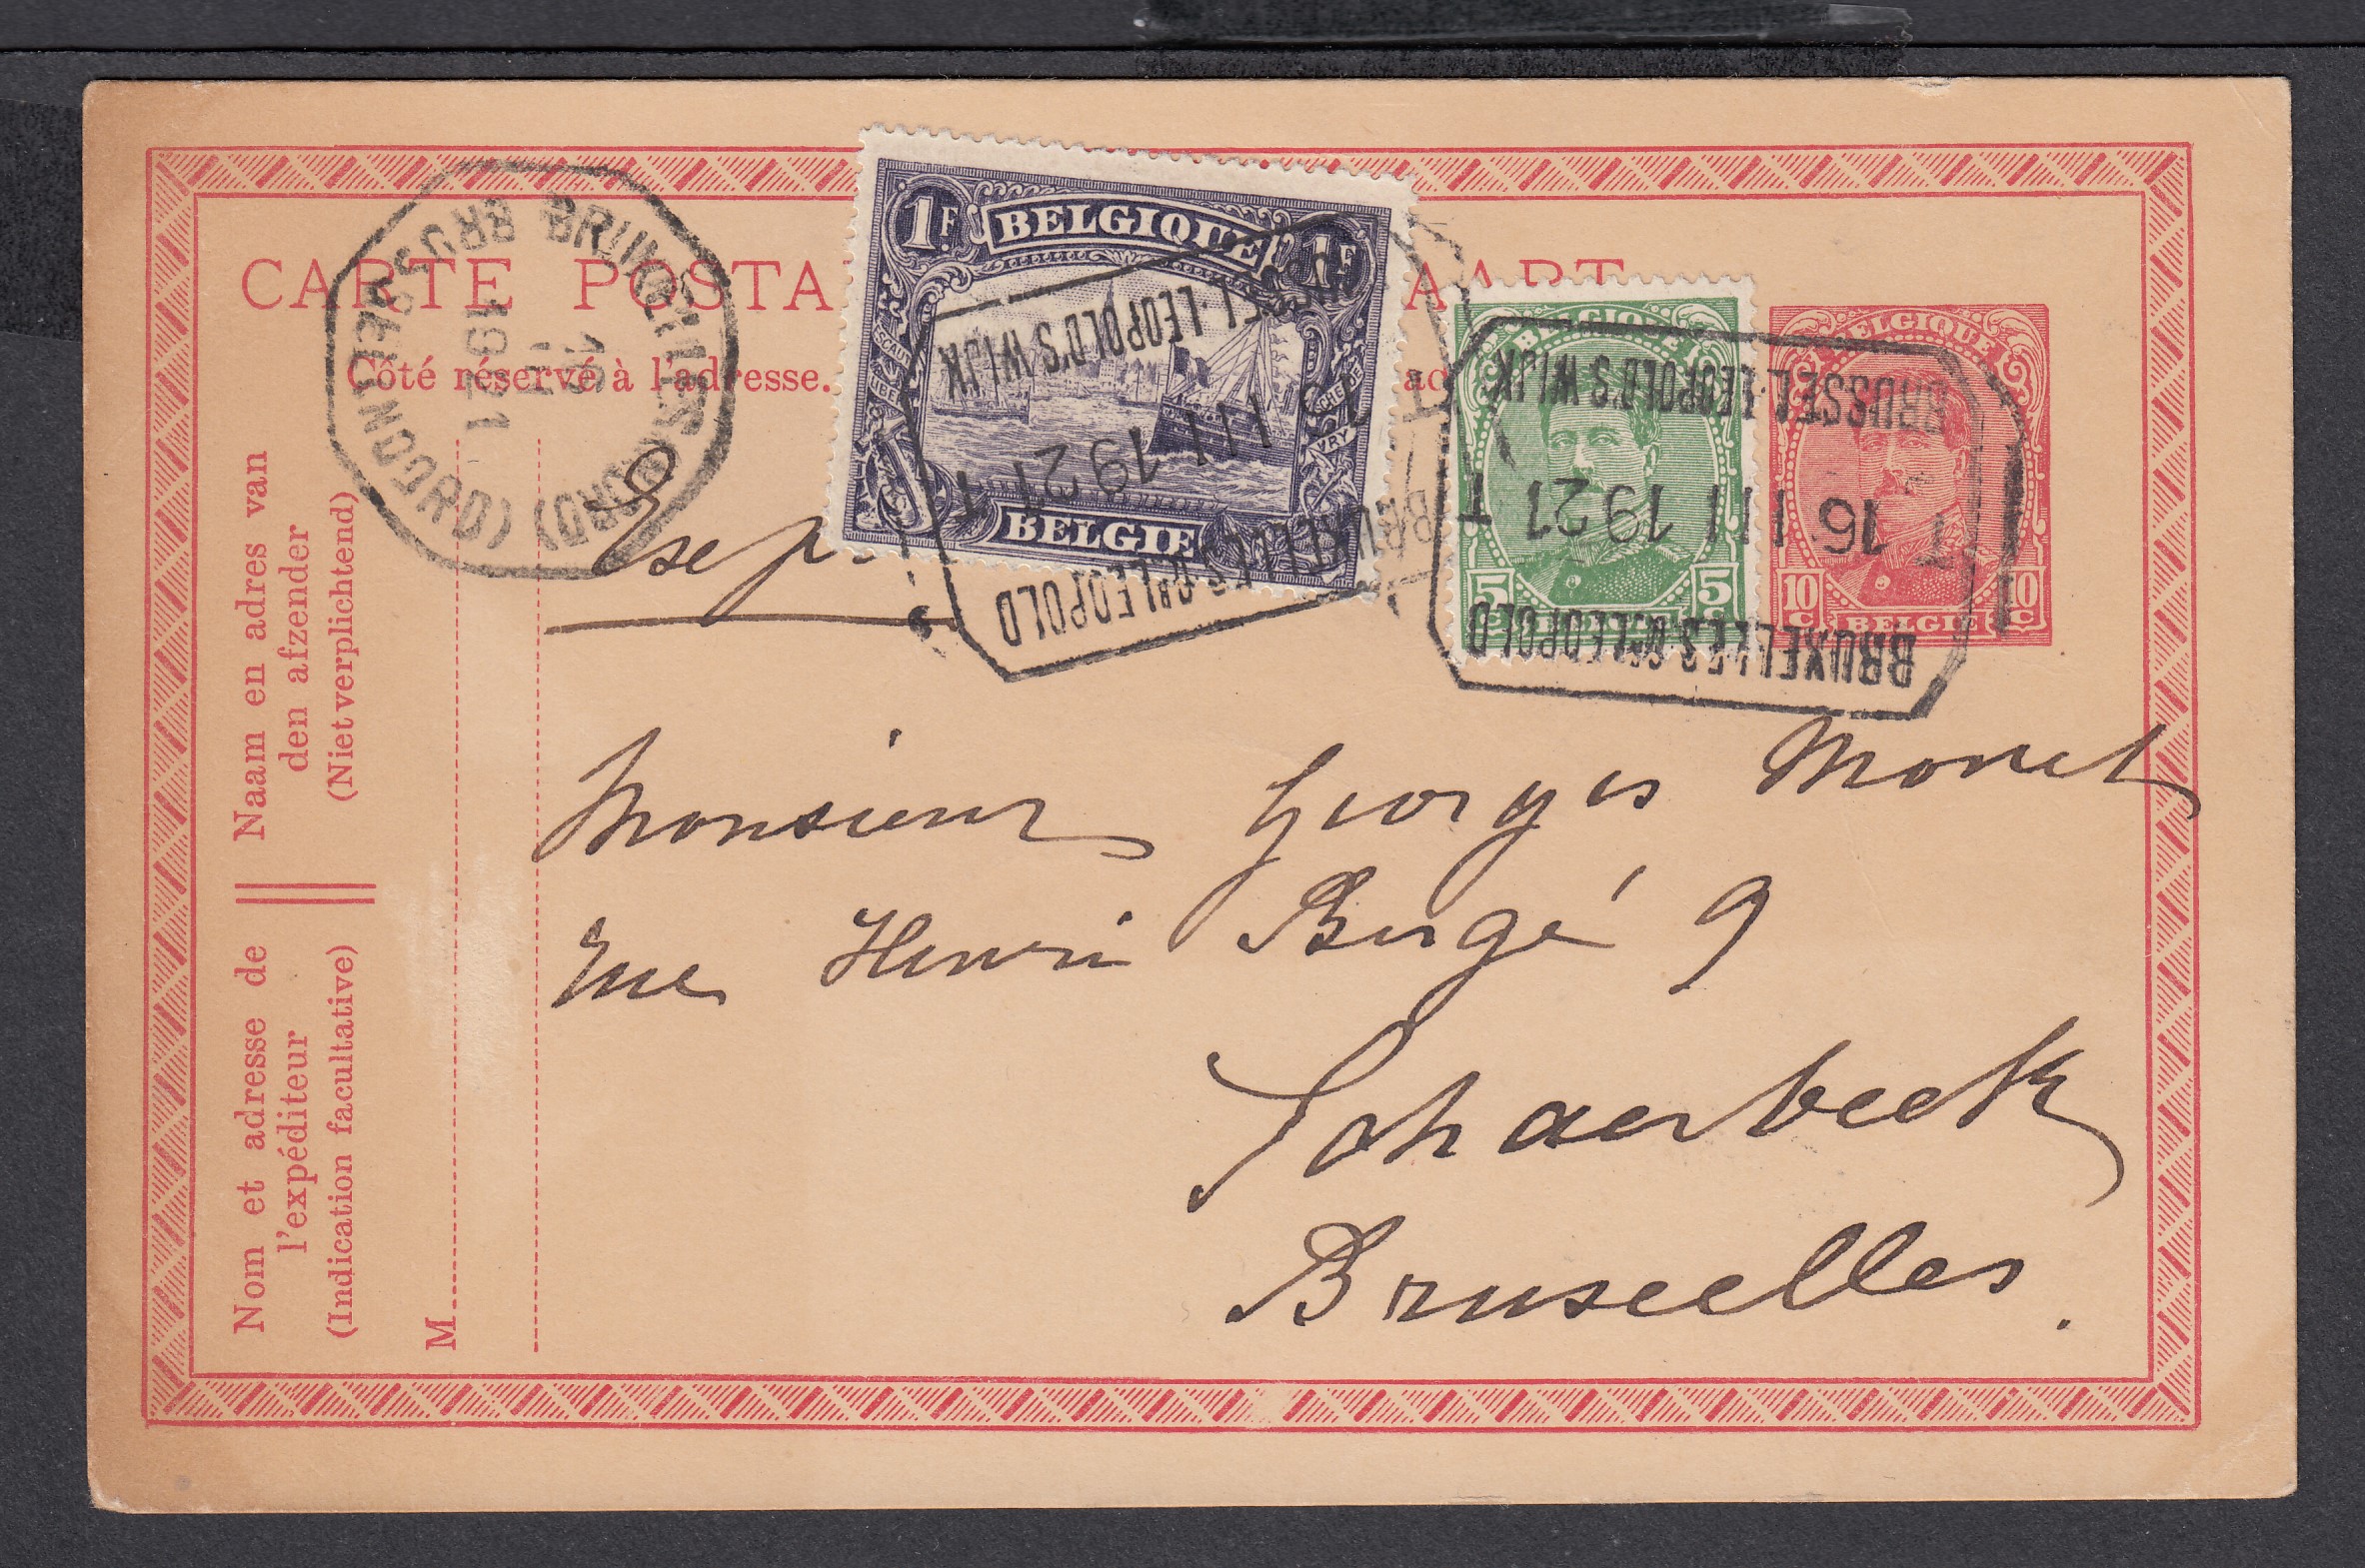 CARTE POSTA
AART
Côté réservé à l'adresse.
BRUXELLES (NORD)
BRUSSEL (NOORD)
16
III
1921
1F BELGIQUE 1F
ESCAUT LIBE
SCHELDE VRY
BELGIE
BRUSSEL-LEOPOLD'S WIJK
T 16 III 1921 T
BRUXELLES Q. LEOPOLD
BELGIQUE
5C BELGIE 5C
BELGIQUE
10C BELGIE 10C
BRUSSEL-LEOPOLD'S WIJK
T 16 III 1921 T
BRUXELLES Q. LEOPOLD
Monsieur Georges Monet
rue Henri Bergé 9
Schaerbeek
Bruxelles.
Naam en adres van
den afzender
(Niet verplichtend)
Nom et adresse de
l'expéditeur
(Indication facultative)
M